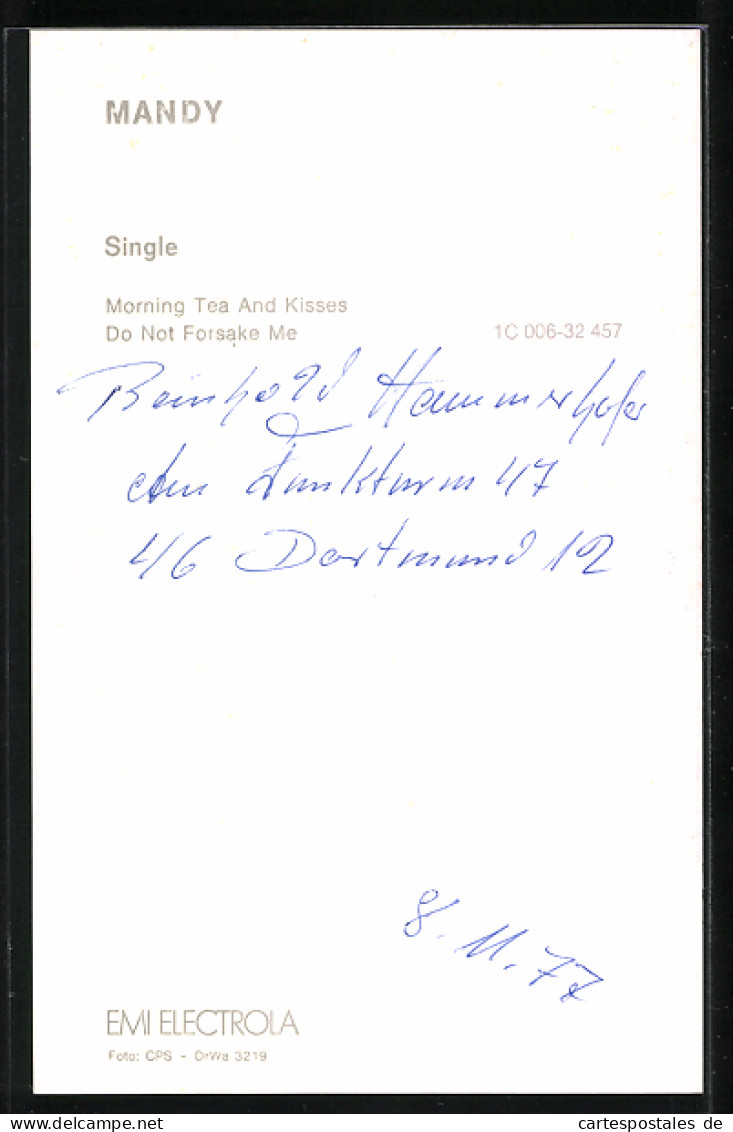 MANDY
Single
Morning Tea And Kisses
Do Not Forsake Me 1C 006-32 457
Reinhold Hammerhofer
Am Funkturm 47
46 Dortmund 12
8.11.77
EMI ELECTROLA
Foto: CPS - DrWa 3219
cartespostales de